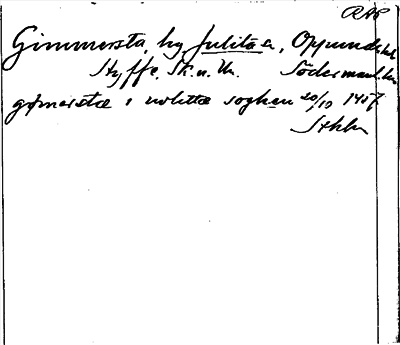 RAP
Gimmersta, by, Julita sn, Oppunda hd
Styffe, Sk. u. Un. Södermanl. län
gømerstæ i wlettæ soghen 20/10 1457
Sthlm